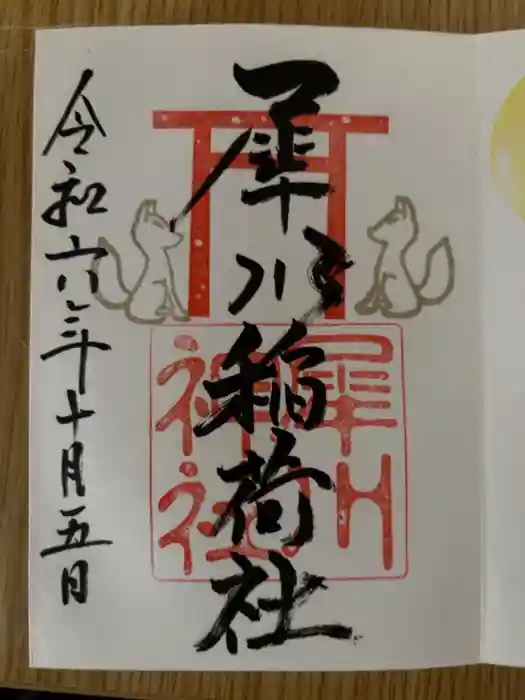 犀川稲荷社
令和六年十月五日
犀川
神社